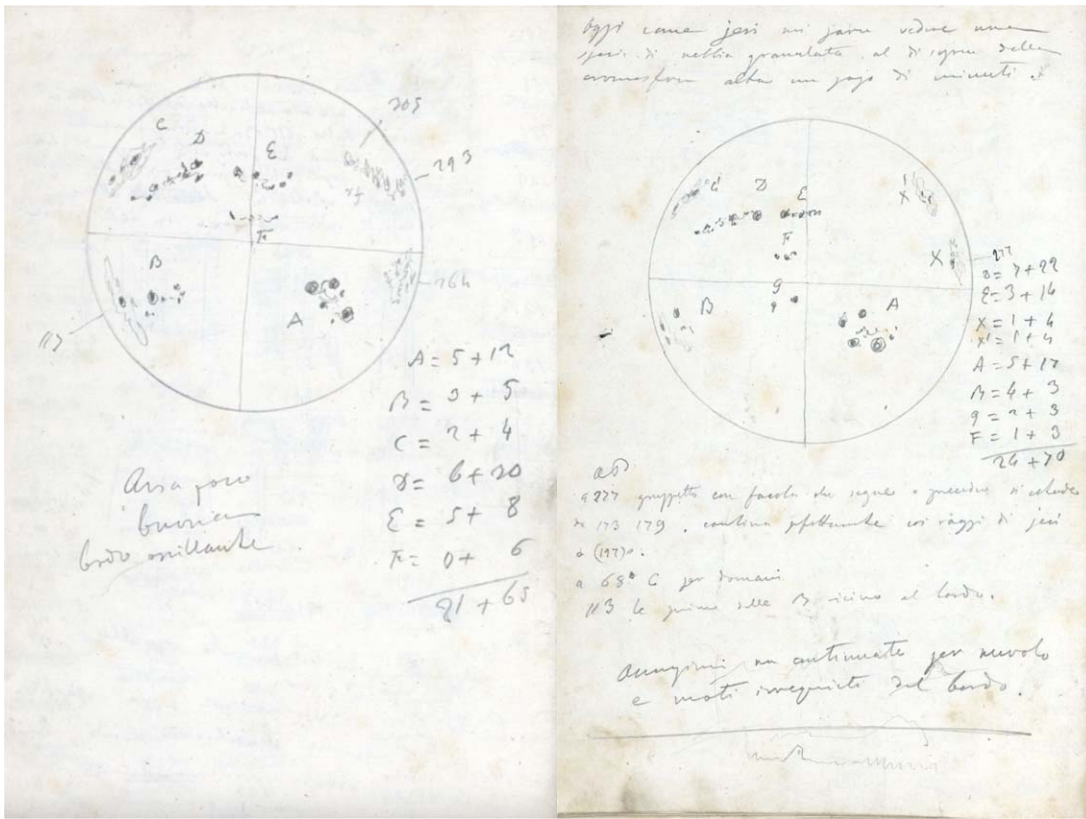 C
D
E
305
293
F
B
164
A
113
A = 5 + 12
B = 3 + 5
C = 2 + 4
D = 6 + 20
E = 5 + 8
F = 0 + 6
21 + 65
Aria poco
buona
bordo oscillante
Oggi come jeri mi parve vedere una
specie di nebbia granulata al di sopra della
cromosfera alta un pajo di minuti
C
D
E
F
X'
X
277
B
g
A
D = 7 + 22
E = 3 + 14
X = 1 + 4
X' = 1 + 4
A = 5 + 17
B = 4 + 3
g = 2 + 3
F = 1 + 3
24 + 70
a 277 gruppetto con facola che segue e precede si estende
173 179. continua coi raggi di jeri
a 68° C per domani
113 le prime delle B vicino al bordo.
non continuate per nuvolo
e moti irrequieti del bordo.